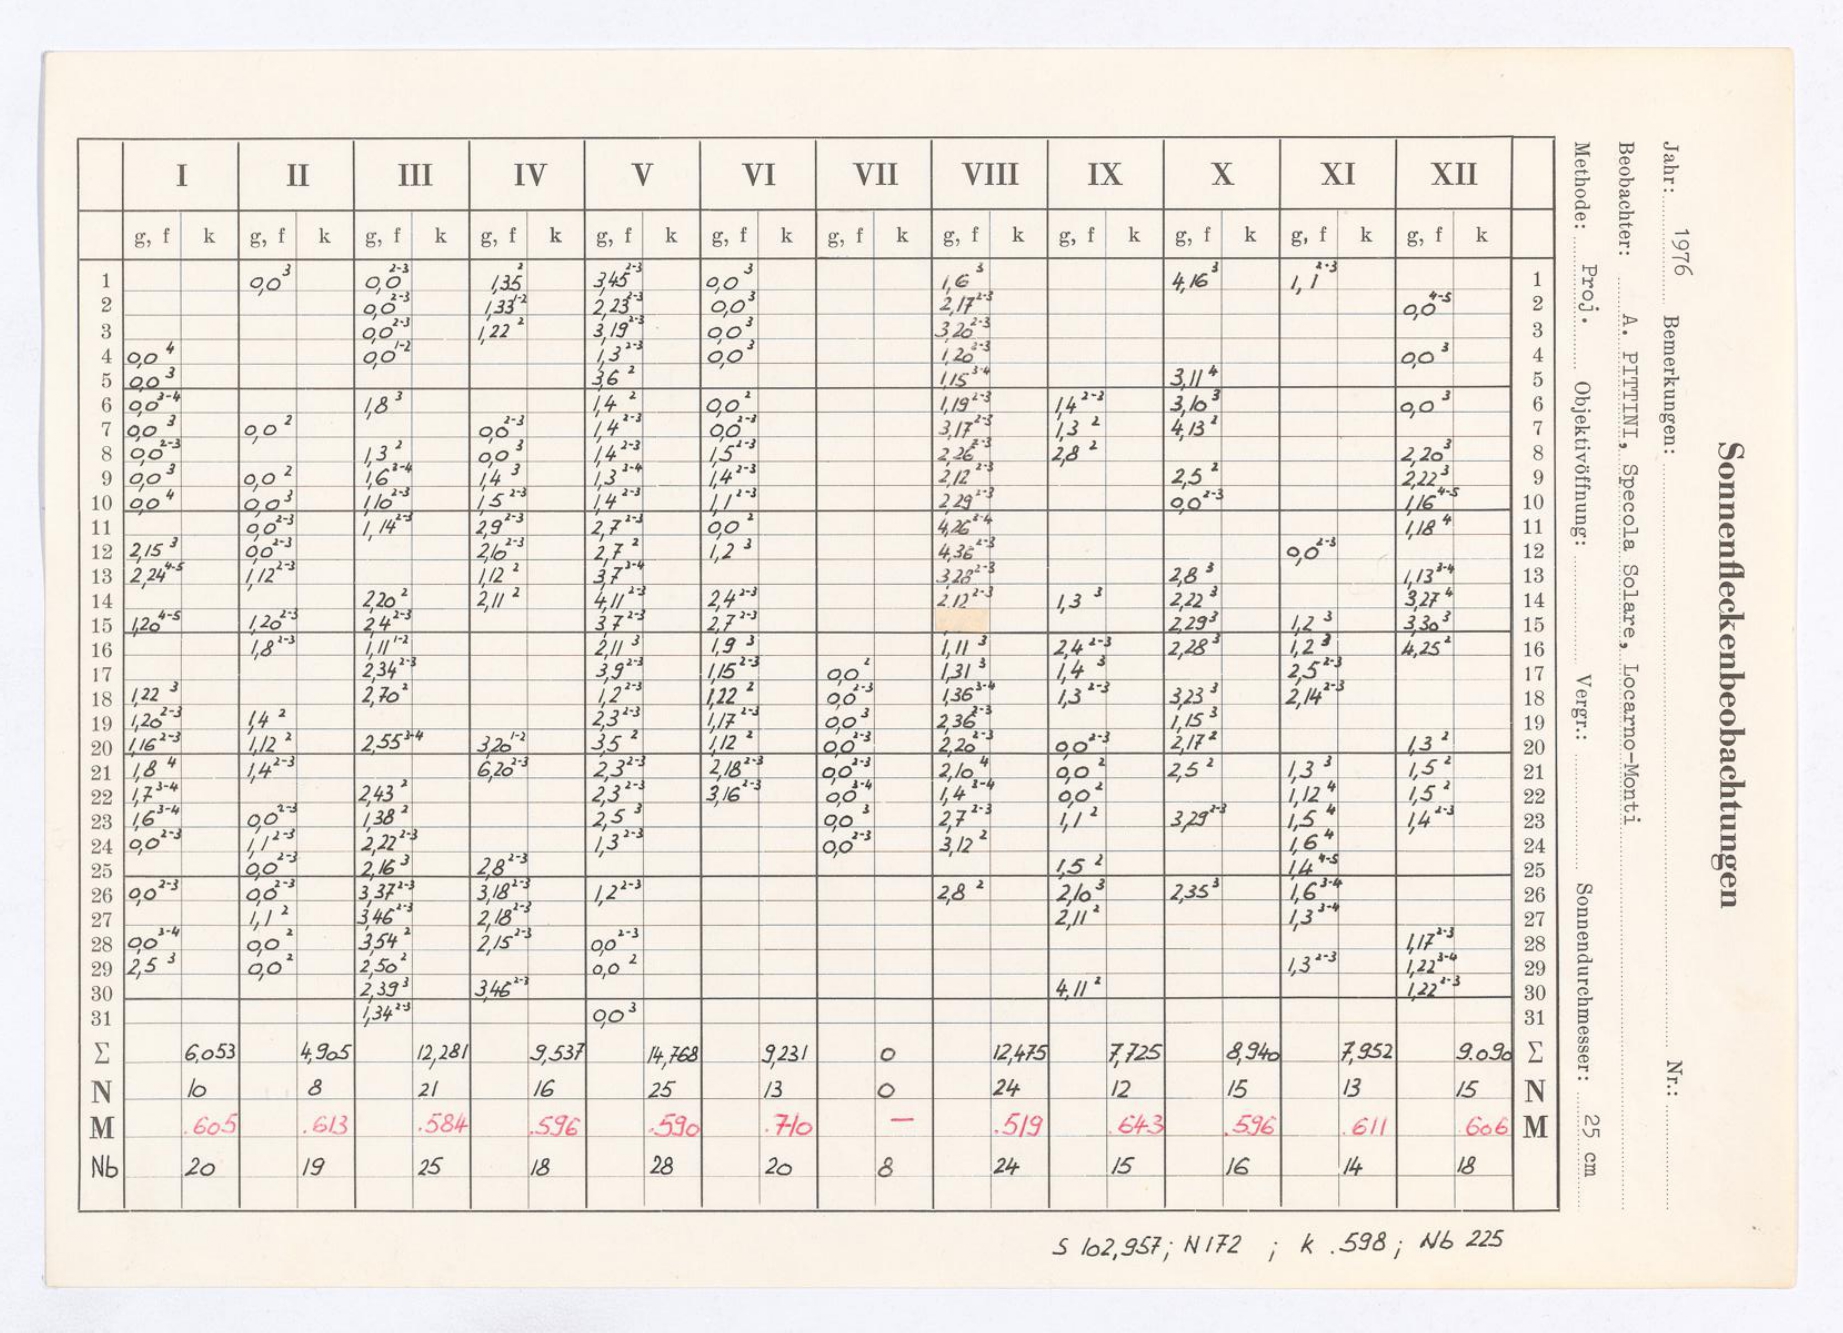 Sonnenfleckenbeobachtungen
Jahr: 1976 Bemerkungen: Nr.:
Beobachter: A. PITTINI, Specola Solare, Locarno-Monti
Methode: Proj. Objektivöffnung: Vergr.: Sonnendurchmesser: 25 cm
I II III IV V VI VII VIII IX X XI XII
g, f k g, f k g, f k g, f k g, f k g, f k g, f k g, f k g, f k g, f k g, f k g, f k
1 0,0³ 0,0²⁻³ 1,35² 3,45²⁻³ 0,0³ 1,6³ 4,16³ 1,1²⁻³ 1
2 0,0²⁻³ 1,33¹⁻² 2,23²⁻³ 0,0³ 2,17²⁻³ 0,0⁴⁻⁵ 2
3 0,0²⁻³ 1,22² 3,19²⁻³ 0,0³ 3,20²⁻³ 3
4 0,0⁴ 0,0¹⁻² 1,3²⁻³ 0,0³ 1,20²⁻³ 0,0³ 4
5 0,0³ 3,6² 1,15³⁻⁴ 3,11⁴ 5
6 0,0³⁻⁴ 1,8³ 1,4² 0,0² 1,19²⁻³ 1,4²⁻³ 3,10³ 0,0³ 6
7 0,0³ 0,0² 0,0²⁻³ 1,4²⁻³ 0,0²⁻³ 3,17²⁻³ 1,3² 4,13² 7
8 0,0²⁻³ 1,3² 0,0³ 1,4²⁻³ 1,5²⁻³ 2,26²⁻³ 2,8² 2,20³ 8
9 0,0³ 0,0² 1,6²⁻⁴ 1,4³ 1,3³⁻⁴ 1,4²⁻³ 2,12²⁻³ 2,5² 2,22³ 9
10 0,0⁴ 0,0³ 1,10²⁻³ 1,5²⁻³ 1,4²⁻³ 1,1²⁻³ 2,29²⁻³ 0,0²⁻³ 1,16⁴⁻⁵ 10
11 0,0²⁻³ 1,14²⁻³ 2,9²⁻³ 2,7²⁻³ 0,0² 4,26²⁻⁴ 1,18⁴ 11
12 2,15³ 0,0²⁻³ 2,10²⁻³ 2,7² 1,2³ 4,36²⁻³ 0,0²⁻³ 12
13 2,24⁴⁻⁵ 1,12²⁻³ 1,12² 3,7³⁻⁴ 3,28²⁻³ 2,8³ 1,13³⁻⁴ 13
14 2,20² 2,11² 4,11²⁻³ 2,4²⁻³ 2,12²⁻³ 1,3³ 2,22³ 3,27⁴ 14
15 1,20⁴⁻⁵ 1,20²⁻³ 2,4²⁻³ 3,7²⁻³ 2,7²⁻³ 2,29³ 1,2³ 3,30³ 15
16 1,8²⁻³ 1,11¹⁻² 2,11³ 1,9³ 1,11³ 2,4²⁻³ 2,28³ 1,2³ 4,25² 16
17 2,34²⁻³ 3,9²⁻³ 1,15²⁻³ 0,0² 1,31³ 1,4³ 2,5²⁻³ 17
18 1,22³ 2,70² 1,2²⁻³ 1,22² 0,0²⁻³ 1,36³⁻⁴ 1,3²⁻³ 3,23³ 2,14²⁻³ 18
19 1,20²⁻³ 1,4² 2,3²⁻³ 1,17²⁻³ 0,0³ 2,36²⁻³ 1,15³ 19
20 1,16²⁻³ 1,12² 2,55³⁻⁴ 3,20¹⁻² 3,5² 1,12² 0,0²⁻³ 2,20²⁻³ 0,0²⁻³ 2,17² 1,3² 20
21 1,8⁴ 1,4²⁻³ 6,20²⁻³ 2,3²⁻³ 2,18²⁻³ 0,0²⁻³ 2,10⁴ 0,0² 2,5² 1,3³ 1,5² 21
22 1,7³⁻⁴ 2,43² 2,3²⁻³ 3,16²⁻³ 0,0³⁻⁴ 1,4³⁻⁴ 0,0² 1,12⁴ 1,5² 22
23 1,6³⁻⁴ 0,0²⁻³ 1,38² 2,5³ 0,0³ 2,7²⁻³ 1,1² 3,29²⁻³ 1,5⁴ 1,4²⁻³ 23
24 0,0²⁻³ 1,1²⁻³ 2,22²⁻³ 1,3²⁻³ 0,0²⁻³ 3,12² 1,6⁴ 24
25 0,0²⁻³ 2,16³ 2,8²⁻³ 1,5² 1,4⁴⁻⁵ 25
26 0,0²⁻³ 0,0²⁻³ 3,37²⁻³ 3,18²⁻³ 1,2²⁻³ 2,8² 2,10³ 2,35³ 1,6³⁻⁴ 26
27 1,1² 3,46²⁻³ 2,18²⁻³ 2,11² 1,3³⁻⁴ 27
28 0,0³⁻⁴ 0,0² 3,54² 2,15²⁻³ 0,0²⁻³ 1,17²⁻³ 28
29 2,5³ 0,0² 2,50² 0,0² 1,3²⁻³ 1,22³⁻⁴ 29
30 2,39³ 3,46²⁻³ 4,11² 1,22²⁻³ 30
31 1,34²⁻³ 0,0³ 31
Σ 6,053 4,905 12,281 9,537 14,768 9,231 0 12,475 7,725 8,940 7,952 9.090 Σ
N 10 8 21 16 25 13 0 24 12 15 13 15 N
M .605 .613 .584 .596 .590 .710 — .519 .643 .596 .611 606 M
Nb 20 19 25 18 28 20 8 24 15 16 14 18
S 102,957; N 172 ; k .598; Nb 225